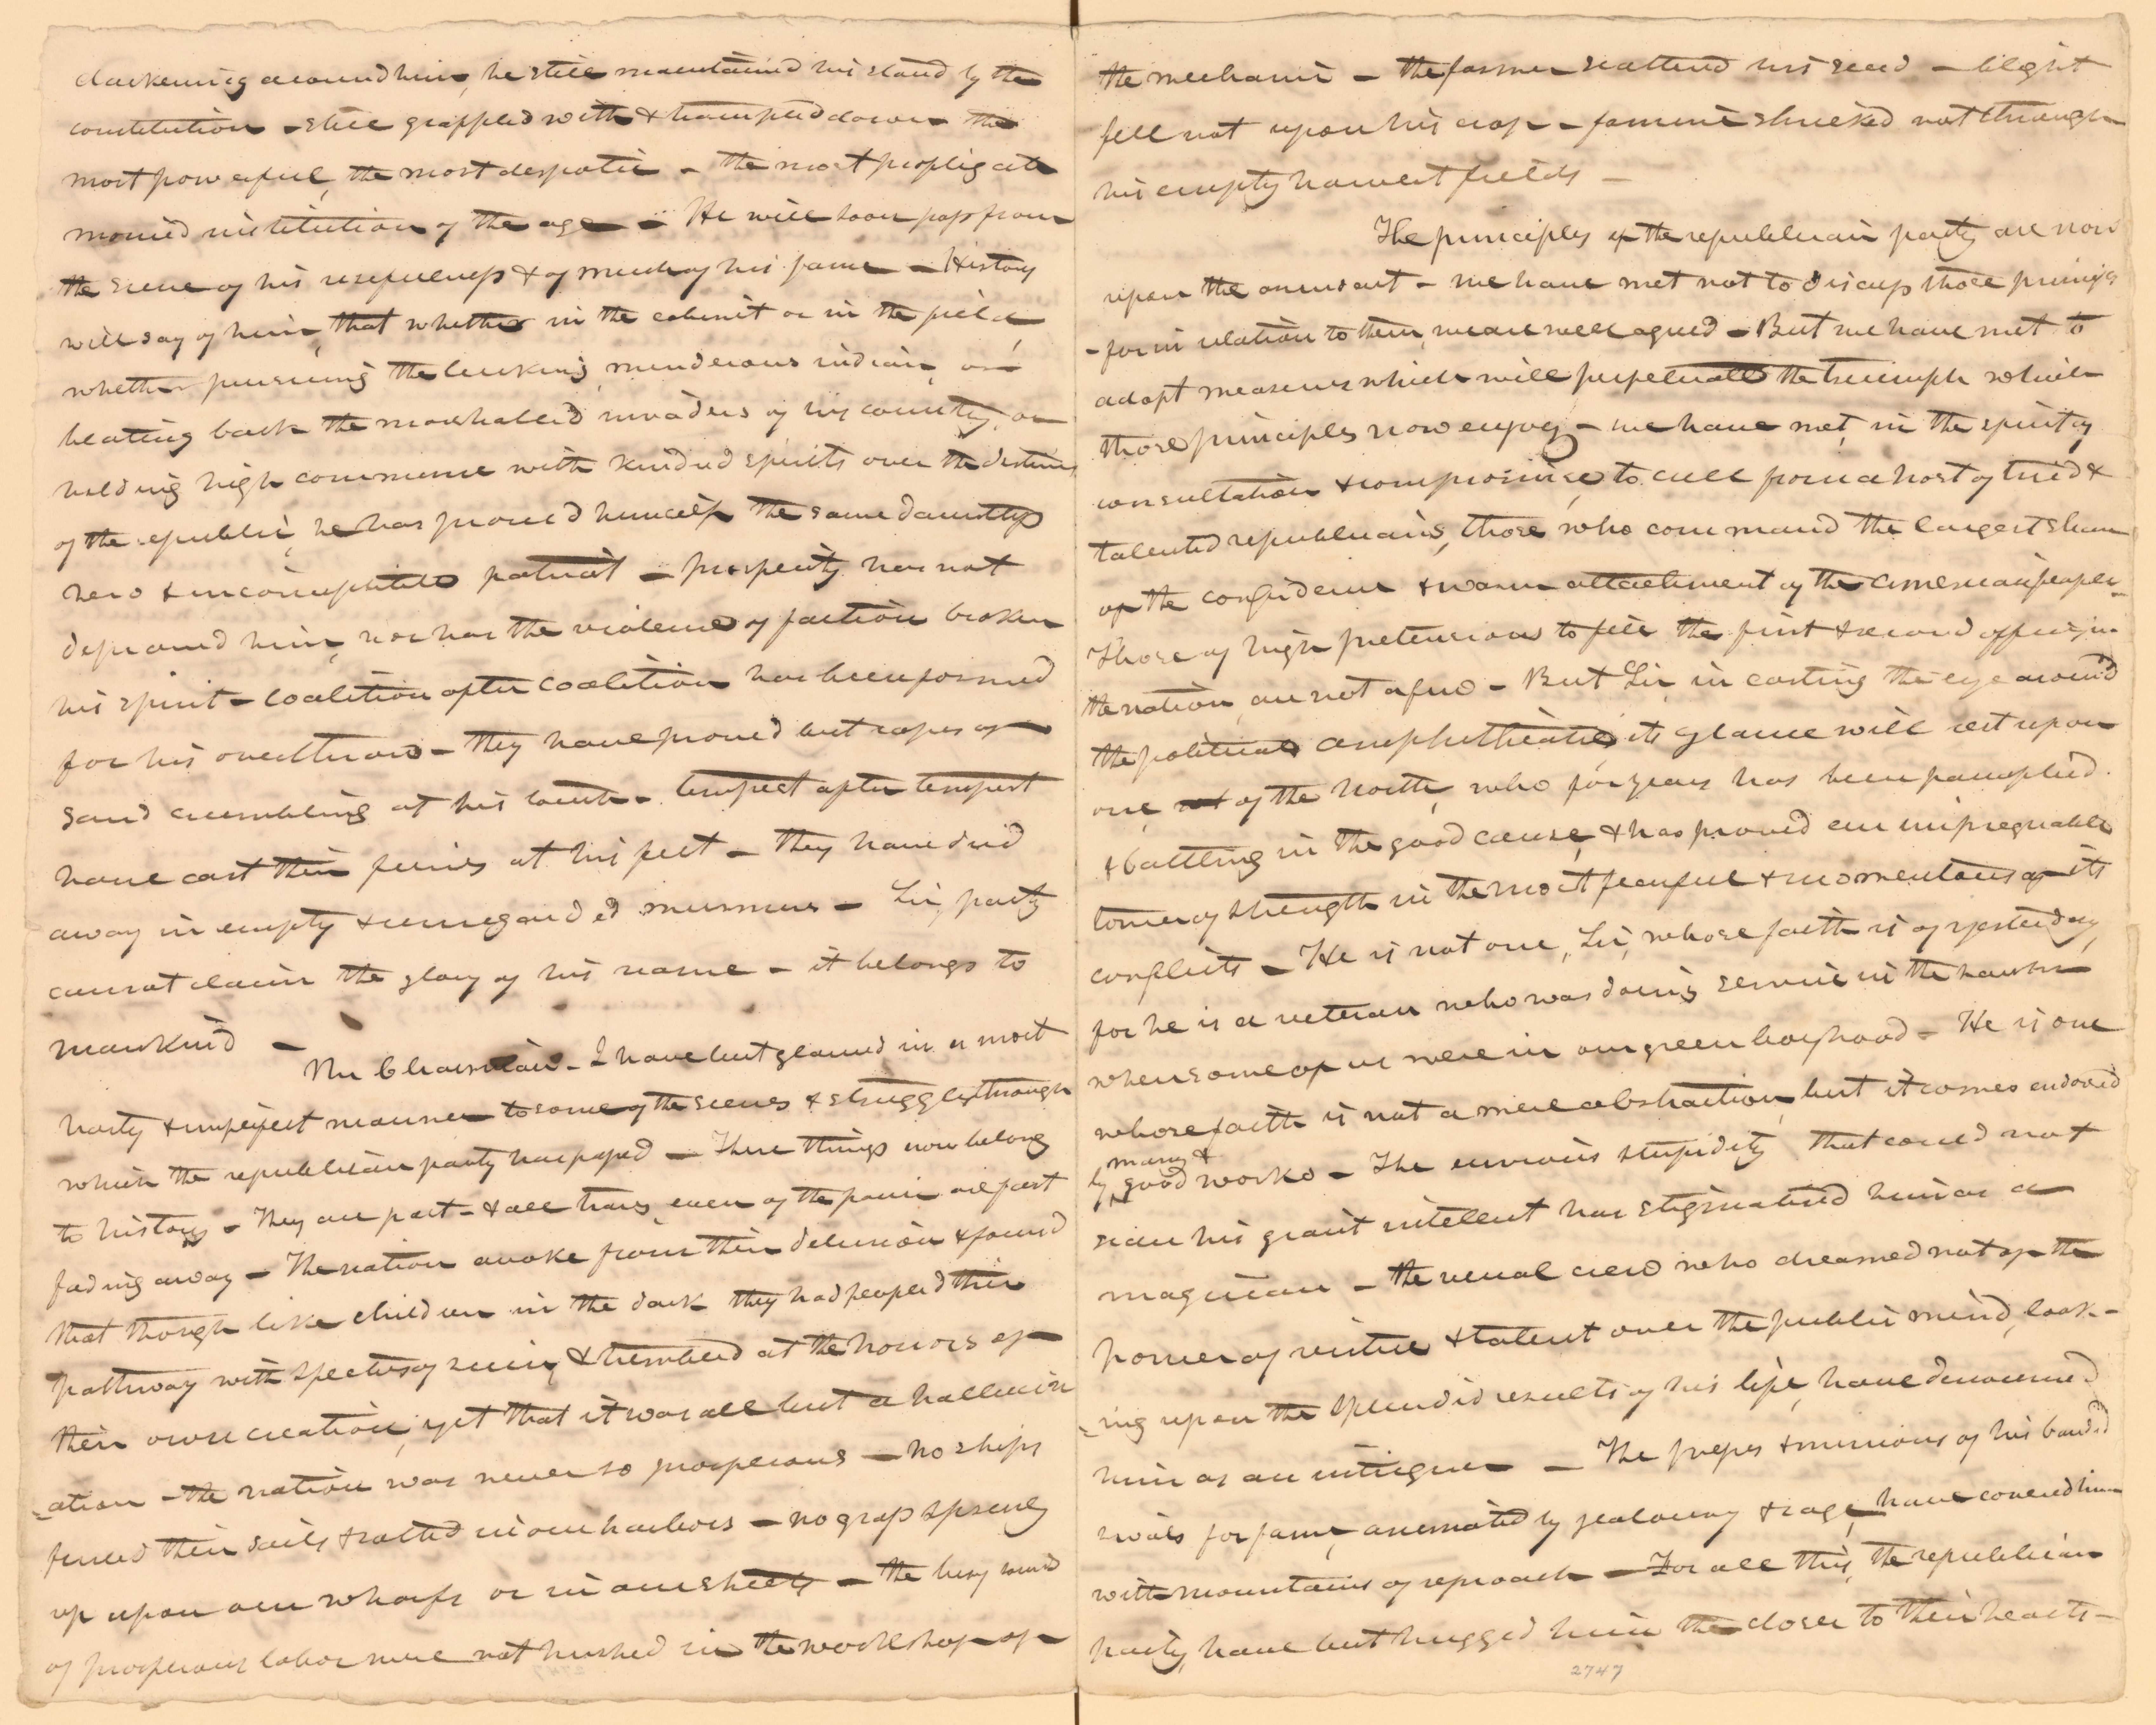 darkening around him, he still maintained his stand by the
constitution - still grappled with & trampled down the
most powerful, the most despotic - the most profligate
monied institution of the age - He will soon pass from
the scene of his usefulness & of much of his fame - History
will say of him, that whether in the cabinet or in the field,
whether pursuing the lurking, murderous indian, or
beating back the marshaled invaders of his country, or
holding high commune with kindred spirits over the destinies
of the republic, he has proved himself the same dauntless
hero & incorruptible patriot - prosperity has not
depraved him, nor has the violence of faction broken
his spirit - Coalition after Coalition has been formed
for his overthrow - they have proved but ropes of
sand crumbling at his touch - tempest after tempest
have cast their furies at his feet - they have died
away in empty & unregarded murmurs - Sir, party
cannot claim the glory of his name - it belongs to
mankind -
Mr Chairman - I have but glanced in a most
hasty & imperfect manner to some of the scenes & struggles through
which the republican party has passed - These things now belong
to history - They are past - & all traces even of the panic are fast
fading away - The nation awoke from their delusion & found
that though like children in the dark they had peopled their
pathway with spectres of ruin, & trembled at the horrors of
their own creation, yet that it was all but a hallucin
-ation - the nation was never so prosperous - No ships
furled their sails & rotted in our harbors - no grass sprung
up upon our wharfs or in our streets - the busy sound
of prosperous labor were not hushed in the workshop of
the mechanic - the farmer scattered his seed - blight
fell not upon his crop - famine shrieked not through
his empty harvest fields -
The principles of the republican party are now
upon the ascendant - we have met not to discuss those principles
- for in relation to them, we are well agreed - But we have met to
adopt measures which will perpetuate the triumph which
those principles now enjoy - we have met, in the spirit of
consultation & compromise, to cull from a host of tried &
talented republicans, those who command the largest share
of the confidence & warm attachment of the American people -
Those of high pretensions to fill the first & second offices in
the nation, are not a few - But Sir, in casting the eye around
the political amphitheatre, its glance will rest upon
one, of the North, who for years has been panoplied
& battling in the good cause, & has proved an impregnable
tower of strength in the most fearful & momentous of its
conflicts - He is not one, Sir, whose faith is of yesterday,
for he is a veteran who was doing service in the harness
when some of us were in our green boyhood - He is one
whose faith is not a mere abstraction, but it comes endorsed
by many & good works - The envious stupidity that could not
scan his giant intellect has stigmatised him as a
magician - the venal crew who dreamed not of the
power of virtue & talent over the public mind, look-
-ing upon the splendid results of his life, have denounced
him as an intriguer - The presses & minions of his banded
rivals for fame, animated by jealousy & rage, have covered him
with mountains of reproach - For all this, the republican
party have but hugged him the closer to their hearts -
2747